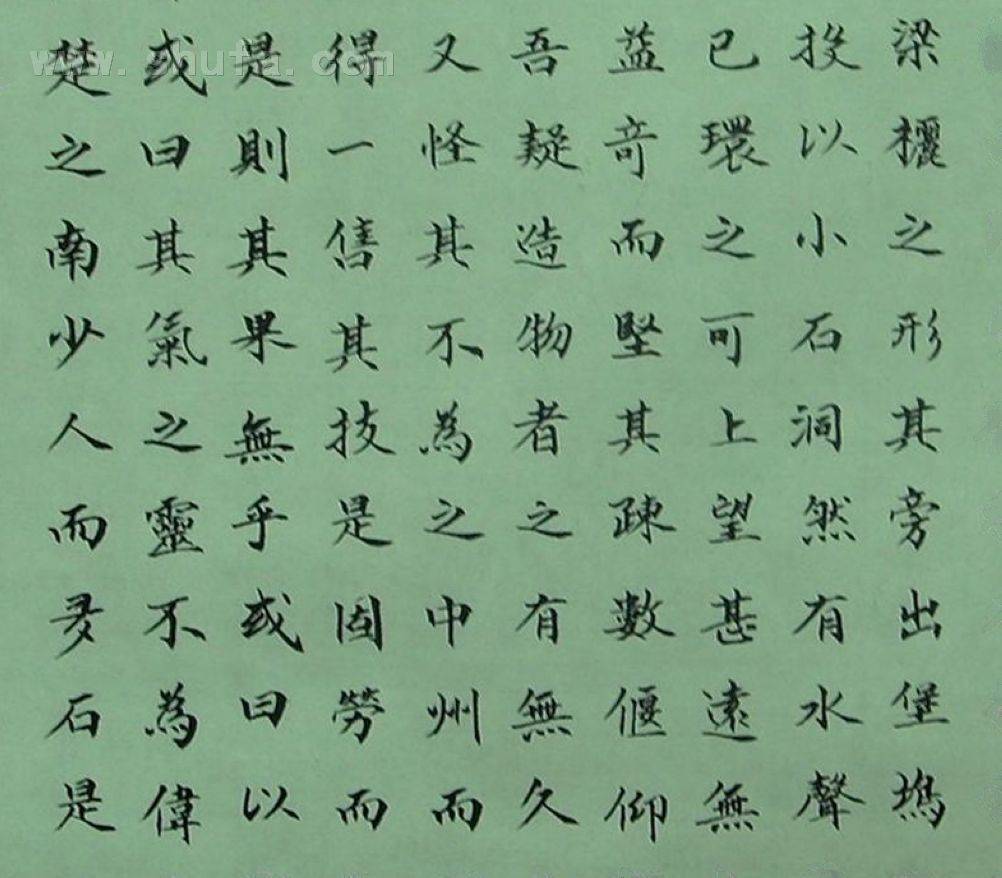 梁欐之形其旁出堡塢
投以小石洞然有水聲
已環之可上望甚遠無
益奇而堅其疎數偃仰
吾疑造物者之有無久
又怪其不為之中州而
得一售其技是固勞而
是則其果無乎或曰以
或曰其氣之靈不為偉
楚之南少人而多石是
www.shufa.com